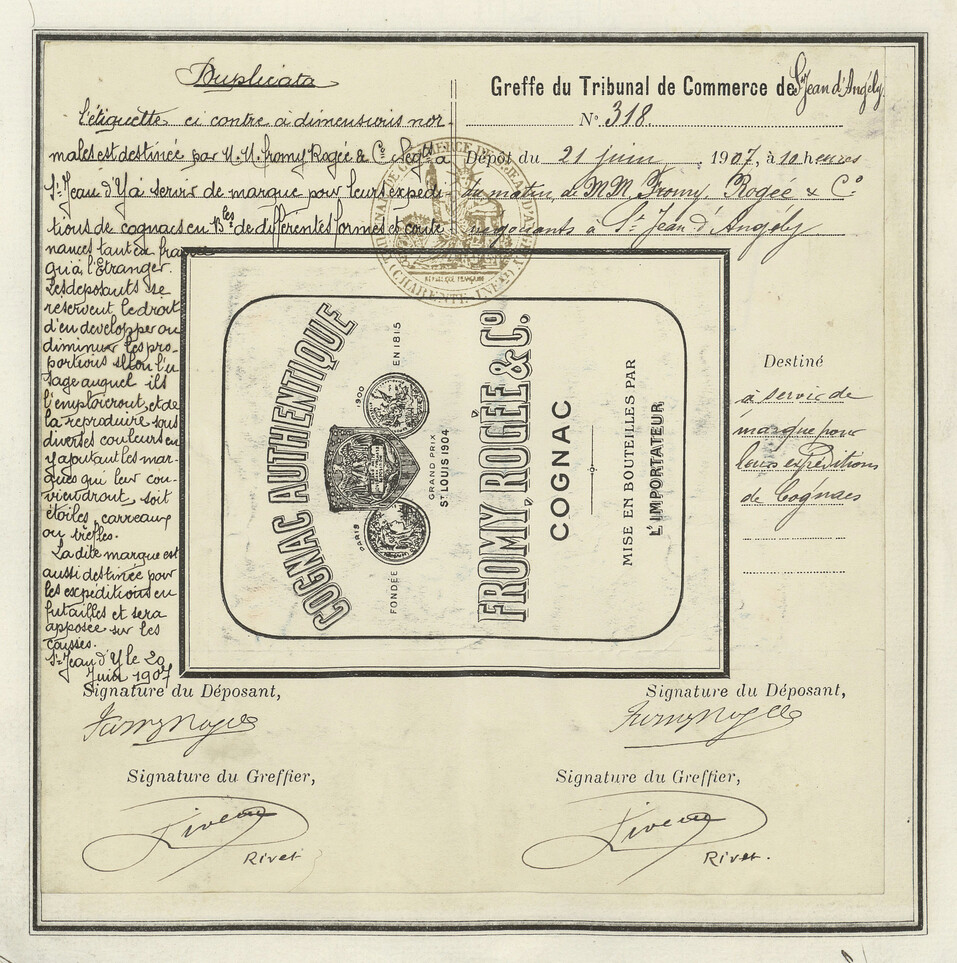 Duplicata
L'étiquette ci contre à dimensions nor-
males est destinée par M.M. Fromy Rogée & Cie Négts à
St Jean d'Y à servir de marque pour leurs expédi-
tions de cognacs en Blles de différentes formes et conte-
nances tant en france
qu'à l'Etranger.
Les déposants se
réservent le droit
d'en développer ou
diminuer les pro-
portions selon l'u-
sage auquel ils
l'emploieront, et de
la reproduire sous
diverses couleurs en
y ajoutant les mar-
ques qui leur con-
viendront soit
étoiles, carreaux
ou trèfles.
La dite marque est
aussi destinée pour
les expéditions en
futailles et sera
apposée sur les
caisses.
St Jean d'Y le 20
Juin 1907
Greffe du Tribunal de Commerce de St Jean d'Angély
No 318.
Dépôt du 21 juin, 1907, à 10 heures
du matin, de MM. Fromy, Rogée & Co
négociants à St Jean d'Angély
RÉPUBLIQUE FRANÇAISE
COGNAC AUTHENTIQUE
FONDÉE EN 1815
PARIS 1900
GRAND PRIX
St LOUIS 1904
FROMY, ROGÉE & Co.
COGNAC
MISE EN BOUTEILLES PAR
L'IMPORTATEUR
Destiné
à servir de
marque pour
leurs expéditions
de Cognacs
Signature du Déposant,
Fromy Rogée
Signature du Greffier,
Rivet
Signature du Déposant,
Fromy Rogée
Signature du Greffier,
Rivet.